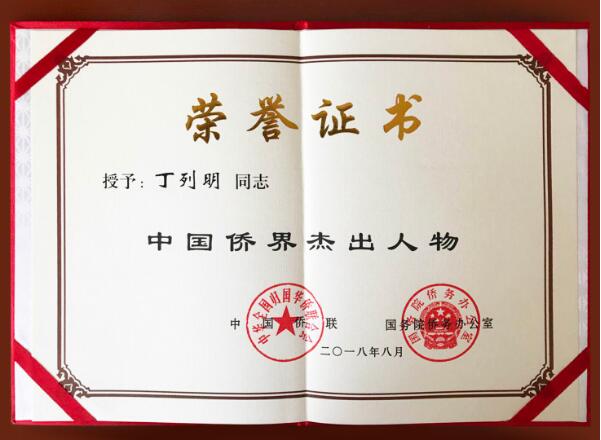 荣誉证书
授予：丁列明 同志
中国侨界杰出人物
中国侨联 国务院侨务办公室
中华全国归国华侨联合会
国务院侨务办公室
二〇一八年八月